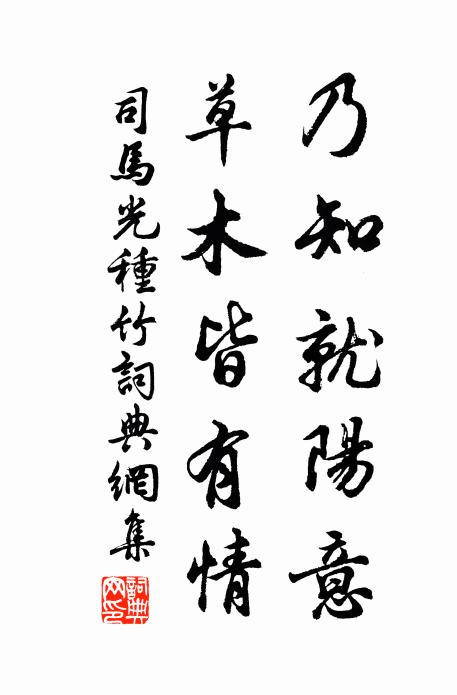 乃知就陽意
草木皆有情
司馬光種竹詞典網集
詞典
网印